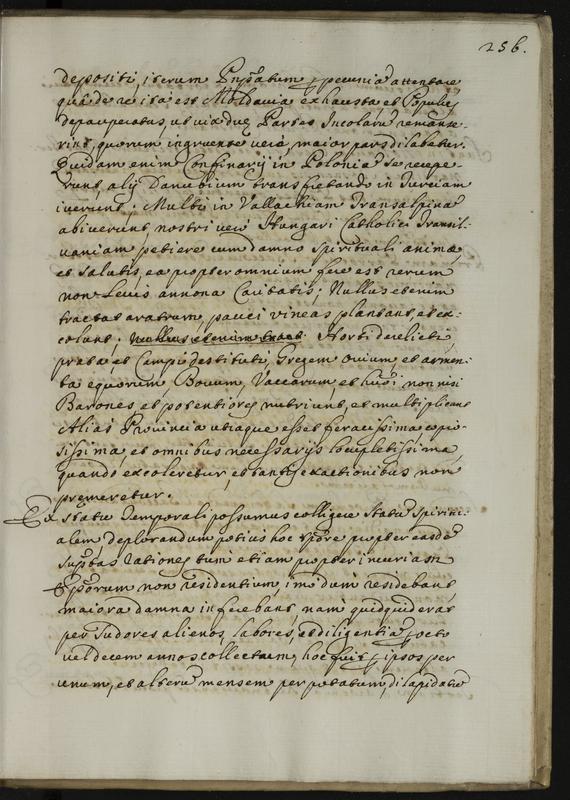 256.
depositi, iterum Prĩpatum ꝑ pecunia attentare
quã de re ita est Moldavia exhausta, et Populus
depauperatus, ut vix duę Partes Incolarũ remanse-
rint, quorum ingruente vere, maior pars dilabetur.
Quidam enim Confinarij in Polonia se recepe-
runt, alij Danubium transfretando in Turciam
iverunt. Multi in Vallachiam Transalpina
abiverunt, nostri verò Hungari Catholici Transil-
vaniam petiere cum damno spirituali anima,
et salutis, ea propter omnium fere est rerum
non Levis annona Caritatis; Nullus etenim
tractat aratrum, pauci vineas plantant, et ex-
colunt, nullus etenim tract. Horti derelicti,
prata, et Campi destituti, Gregem ovium, et armen-
ta equorum Bouum, Vaccarum, et non nisi
Barones et potentiores nutriunt, et multiplicant
Alias Provincia utique esset feracissima copio-
sissima, et omnibus necessarijs locupletissima,
quando excoleretur, et tantis exactionibus non
premeretur.
Ex statu Temporali possumus colligere Statũ Spiritu-
alem, deplorandum potius hoc tp̃ore propter easdẽ
supp̃tas rationes tum etiam propter incuriam
Ep̃porum non residentium, imò dum residebant
maiora damna inferebant, nam quidquid erat
per Sudores alienos, labores, et diligentiã ꝑ octo
vel decem annos collectum, hoc fuit ꝑ ipsos per
unum, et alterũ mensem per potatum, dilapidatũ